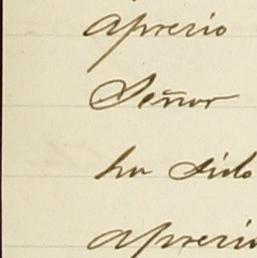 aprecio
Señor
ha sido
aprecio